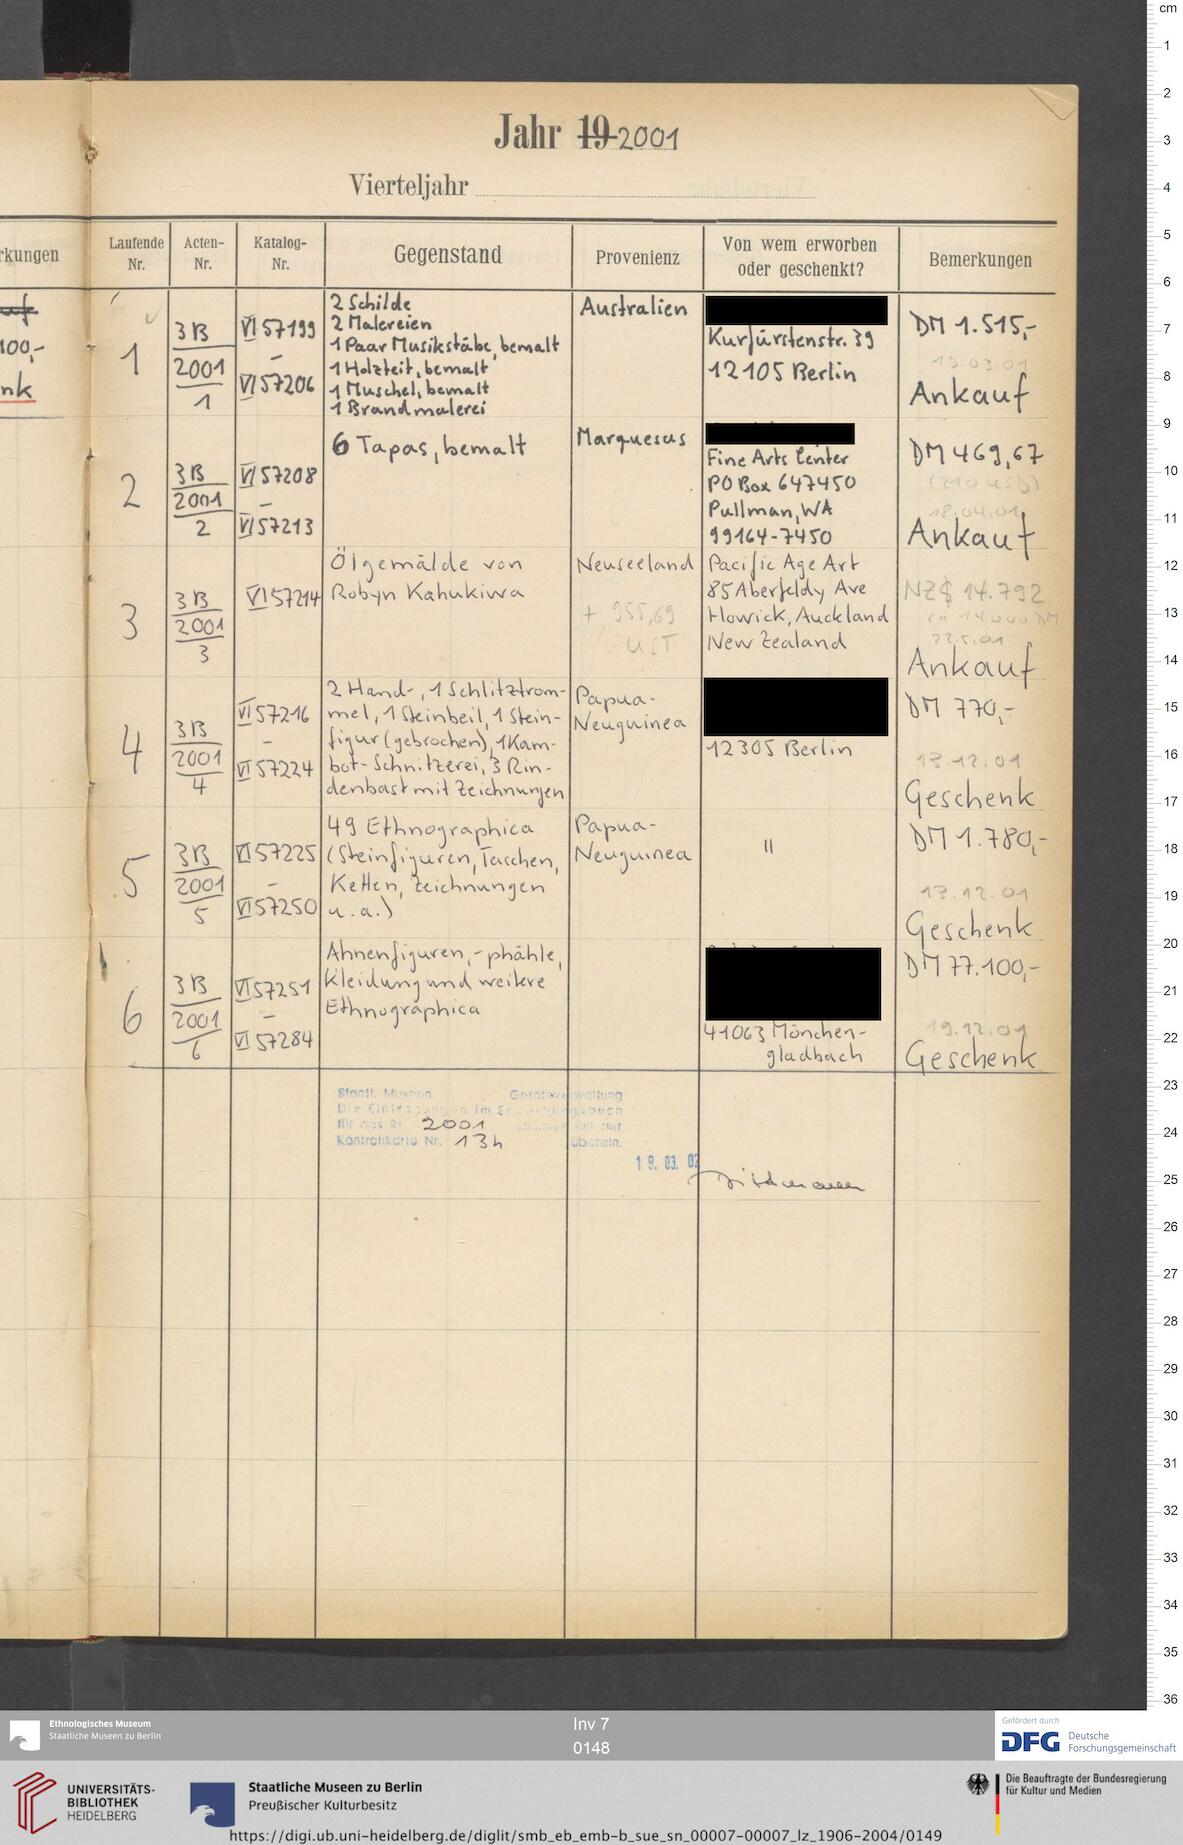 Jahr 19 2001
Vierteljahr
rkungen
100,-
nk
Laufende Nr.
Acten-Nr.
Katalog-Nr.
Gegenstand
Provenienz
Von wem erworben oder geschenkt?
Bemerkungen
1
3B
2001
1
VI 57199
-
VI 57206
2 Schilde
2 Malereien
1 Paar Musikstäbe, bemalt
1 Holzteit, bemalt
1 Muschel, bemalt
1 Brandmalerei
Australien
Kurfürstenstr. 39
12105 Berlin
DM 1.515,-
19.03.01
Ankauf
2
3B
2001
2
VI 57208
-
VI 57213
6 Tapas, bemalt
Marquesas
Fine Arts Center
PO Box 647450
Pullman, WA
99164-7450
DM 469,67
(210 USD)
18.04.01
Ankauf
3
3B
2001
3
VI 57214
Ölgemälde von
Robyn Kahukiwa
Neuseeland
+ 955,69
UST
Pacific Age Art
85 Aberfeldy Ave
Howick, Auckland
New Zealand
NZ$ 14.792
ca 14.000 DM
22.5.01
Ankauf
4
3B
2001
4
VI 57216
-
VI 57224
2 Hand-, 1 Schlitztrom-
mel, 1 Steinbeil, 1 Stein-
figur (gebrochen), 1 Kam-
bot-Schnitzerei, 3 Rin-
denbast mit Zeichnungen
Papua-
Neuguinea
12305 Berlin
DM 770,-
13.12.01
Geschenk
5
3B
2001
5
VI 57225
-
VI 57250
49 Ethnographica
(Steinfiguren, Taschen,
Ketten, Zeichnungen
u.a.)
Papua-
Neuguinea
"
DM 1.780,-
13.12.01
Geschenk
6
3B
2001
6
VI 57251
-
VI 57284
Ahnenfiguren, -phähle,
Kleidung und weitere
Ethnographica
41063 Mönchen-
gladbach
DM 77.100,-
19.12.01
Geschenk
Staatl. Museen Geräteverwaltung
Die Eintragungen im Erwerbungsbuch
für das RJ. 2001 stimmen mit der
Kontrollkarte Nr. 13h überein.
19. 03. 02
cm
1
2
3
4
5
6
7
8
9
10
11
12
13
14
15
16
17
18
19
20
21
22
23
24
25
26
27
28
29
30
31
32
33
34
35
36
Ethnologisches Museum
Staatliche Museen zu Berlin
Inv 7
0148
Gefördert durch
DFG Deutsche
Forschungsgemeinschaft
UNIVERSITÄTS-
BIBLIOTHEK
HEIDELBERG
Staatliche Museen zu Berlin
Preußischer Kulturbesitz
Die Beauftragte der Bundesregierung
für Kultur und Medien
https://digi.ub.uni-heidelberg.de/diglit/smb_eb_emb-b_sue_sn_00007-00007_lz_1906-2004/0149